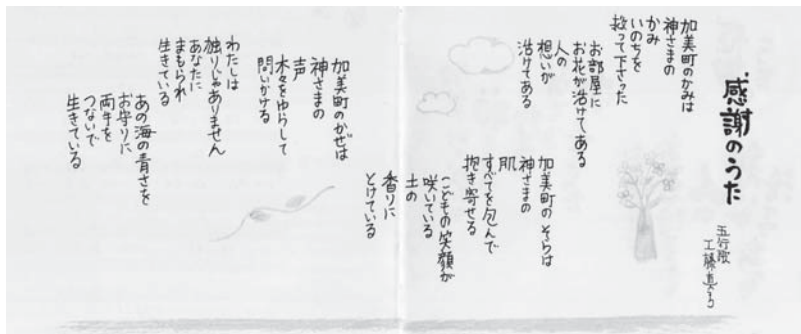 感謝のうた
五行歌
工藤真弓
加美町のかみは
神さまの
かみ
いのちを
投って下さった
お部屋に
お花が活けてある
人の
想いが
活けてある
加美町のそらは
神さまの
肌
すべてを包んで
抱き寄せる
こどもの笑顔が
咲いている
土の
香りに
とけている
加美町のかぜは
神さまの
声
木々をゆらして
問いかける
わたしは
独りじゃありません
あなたに
まもられ
生きている
あの海の青さを
お守りに
両手を
つないで
生きている